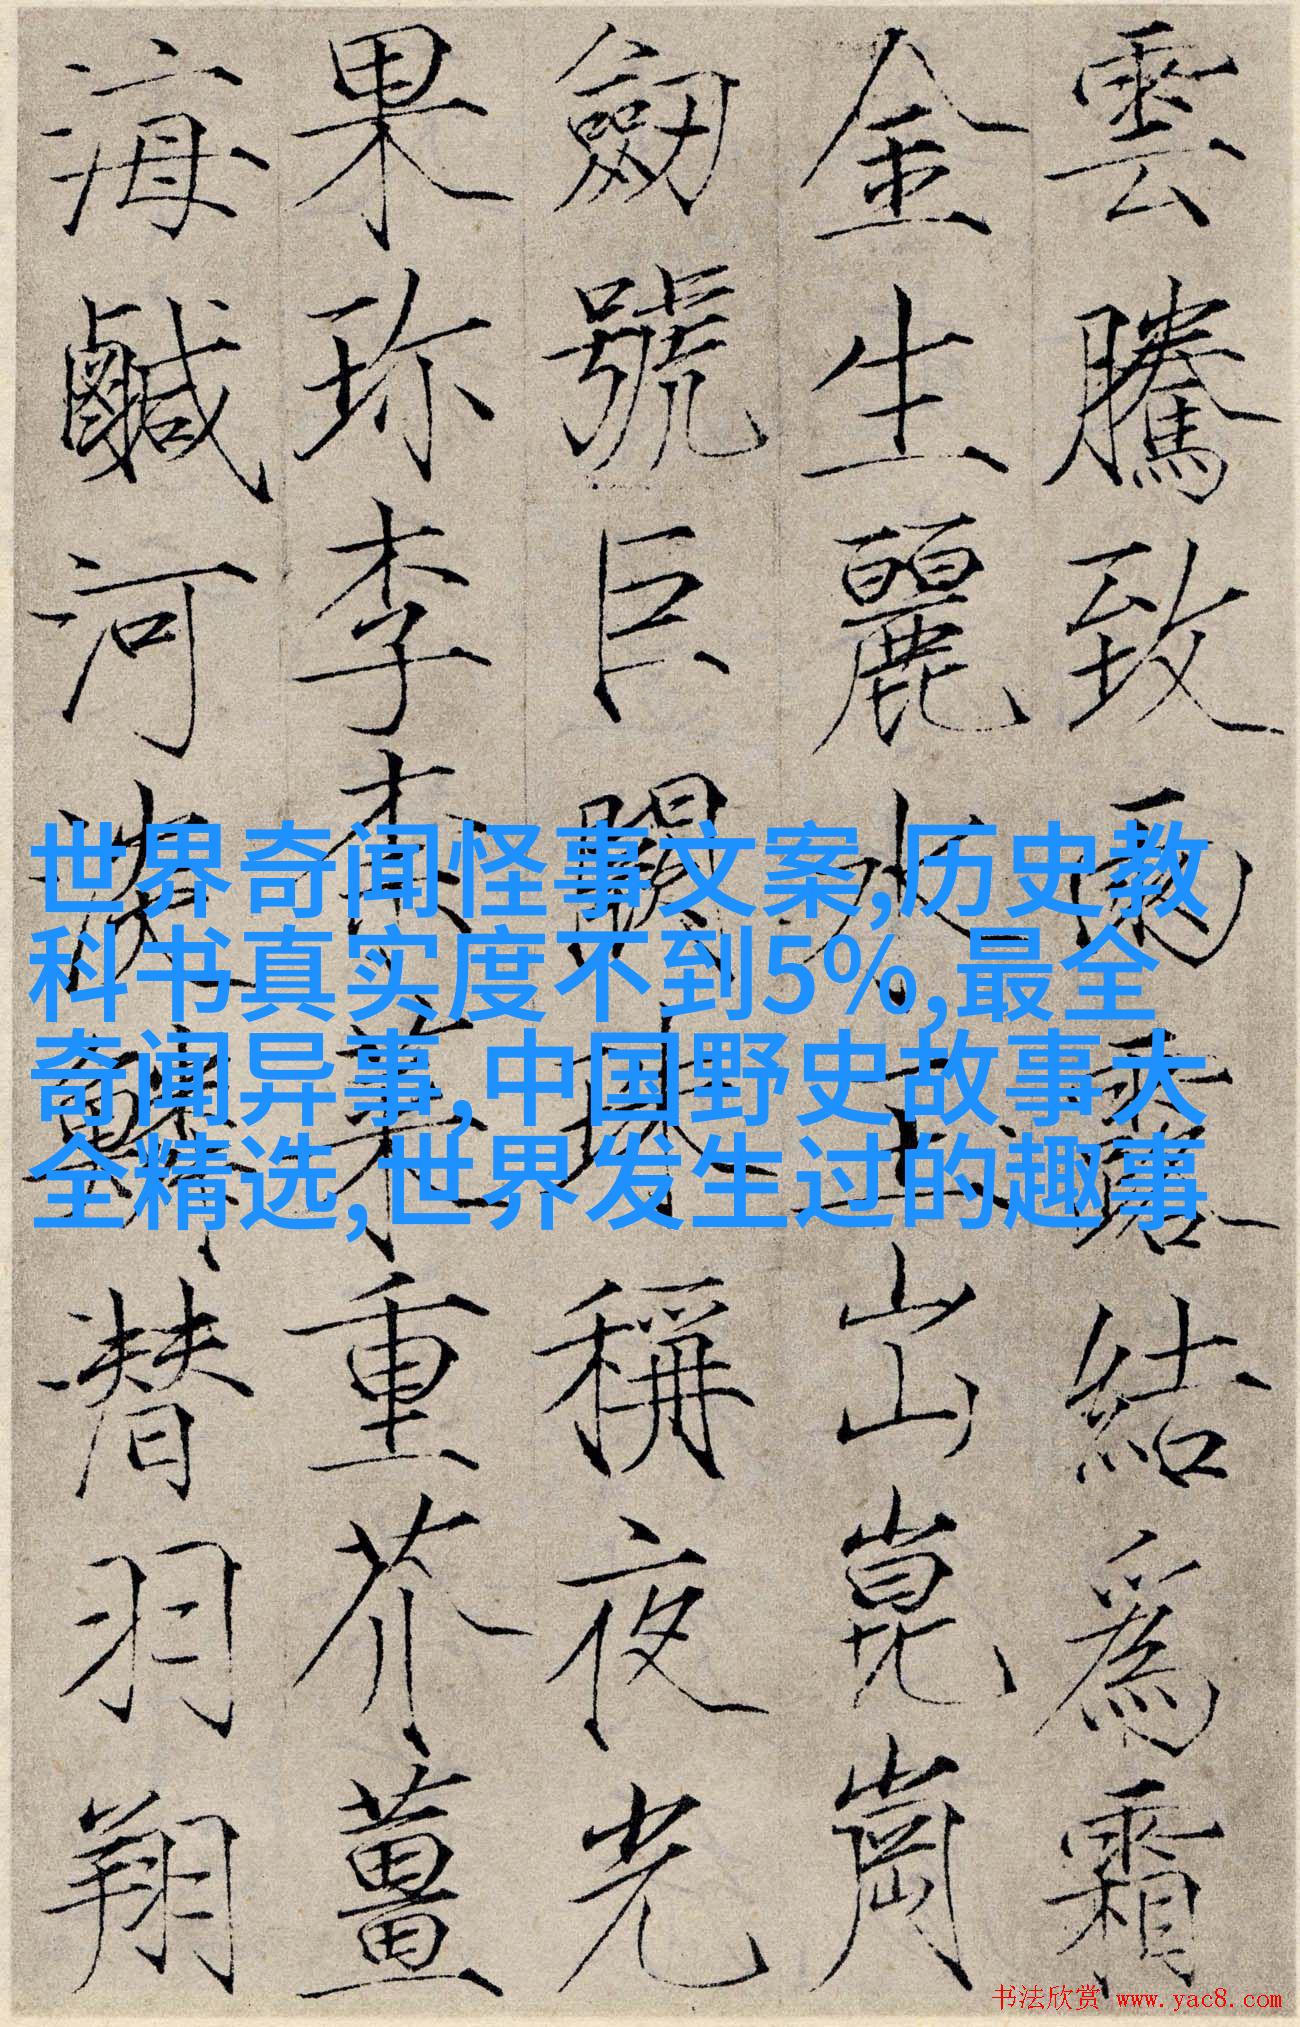 雲騰致雨露結爲霜
金生麗水玉出崑崗
劒號巨闕珠稱夜光
果珎李柰菜重芥薑
海鹹河淡鱗潜羽翔
世界奇闻怪事文案,历史教
科书真实度不到5%,最全
奇闻异事,中国野史故事大
全精选,世界发生过的趣事
书法欣赏 www.yac8.com